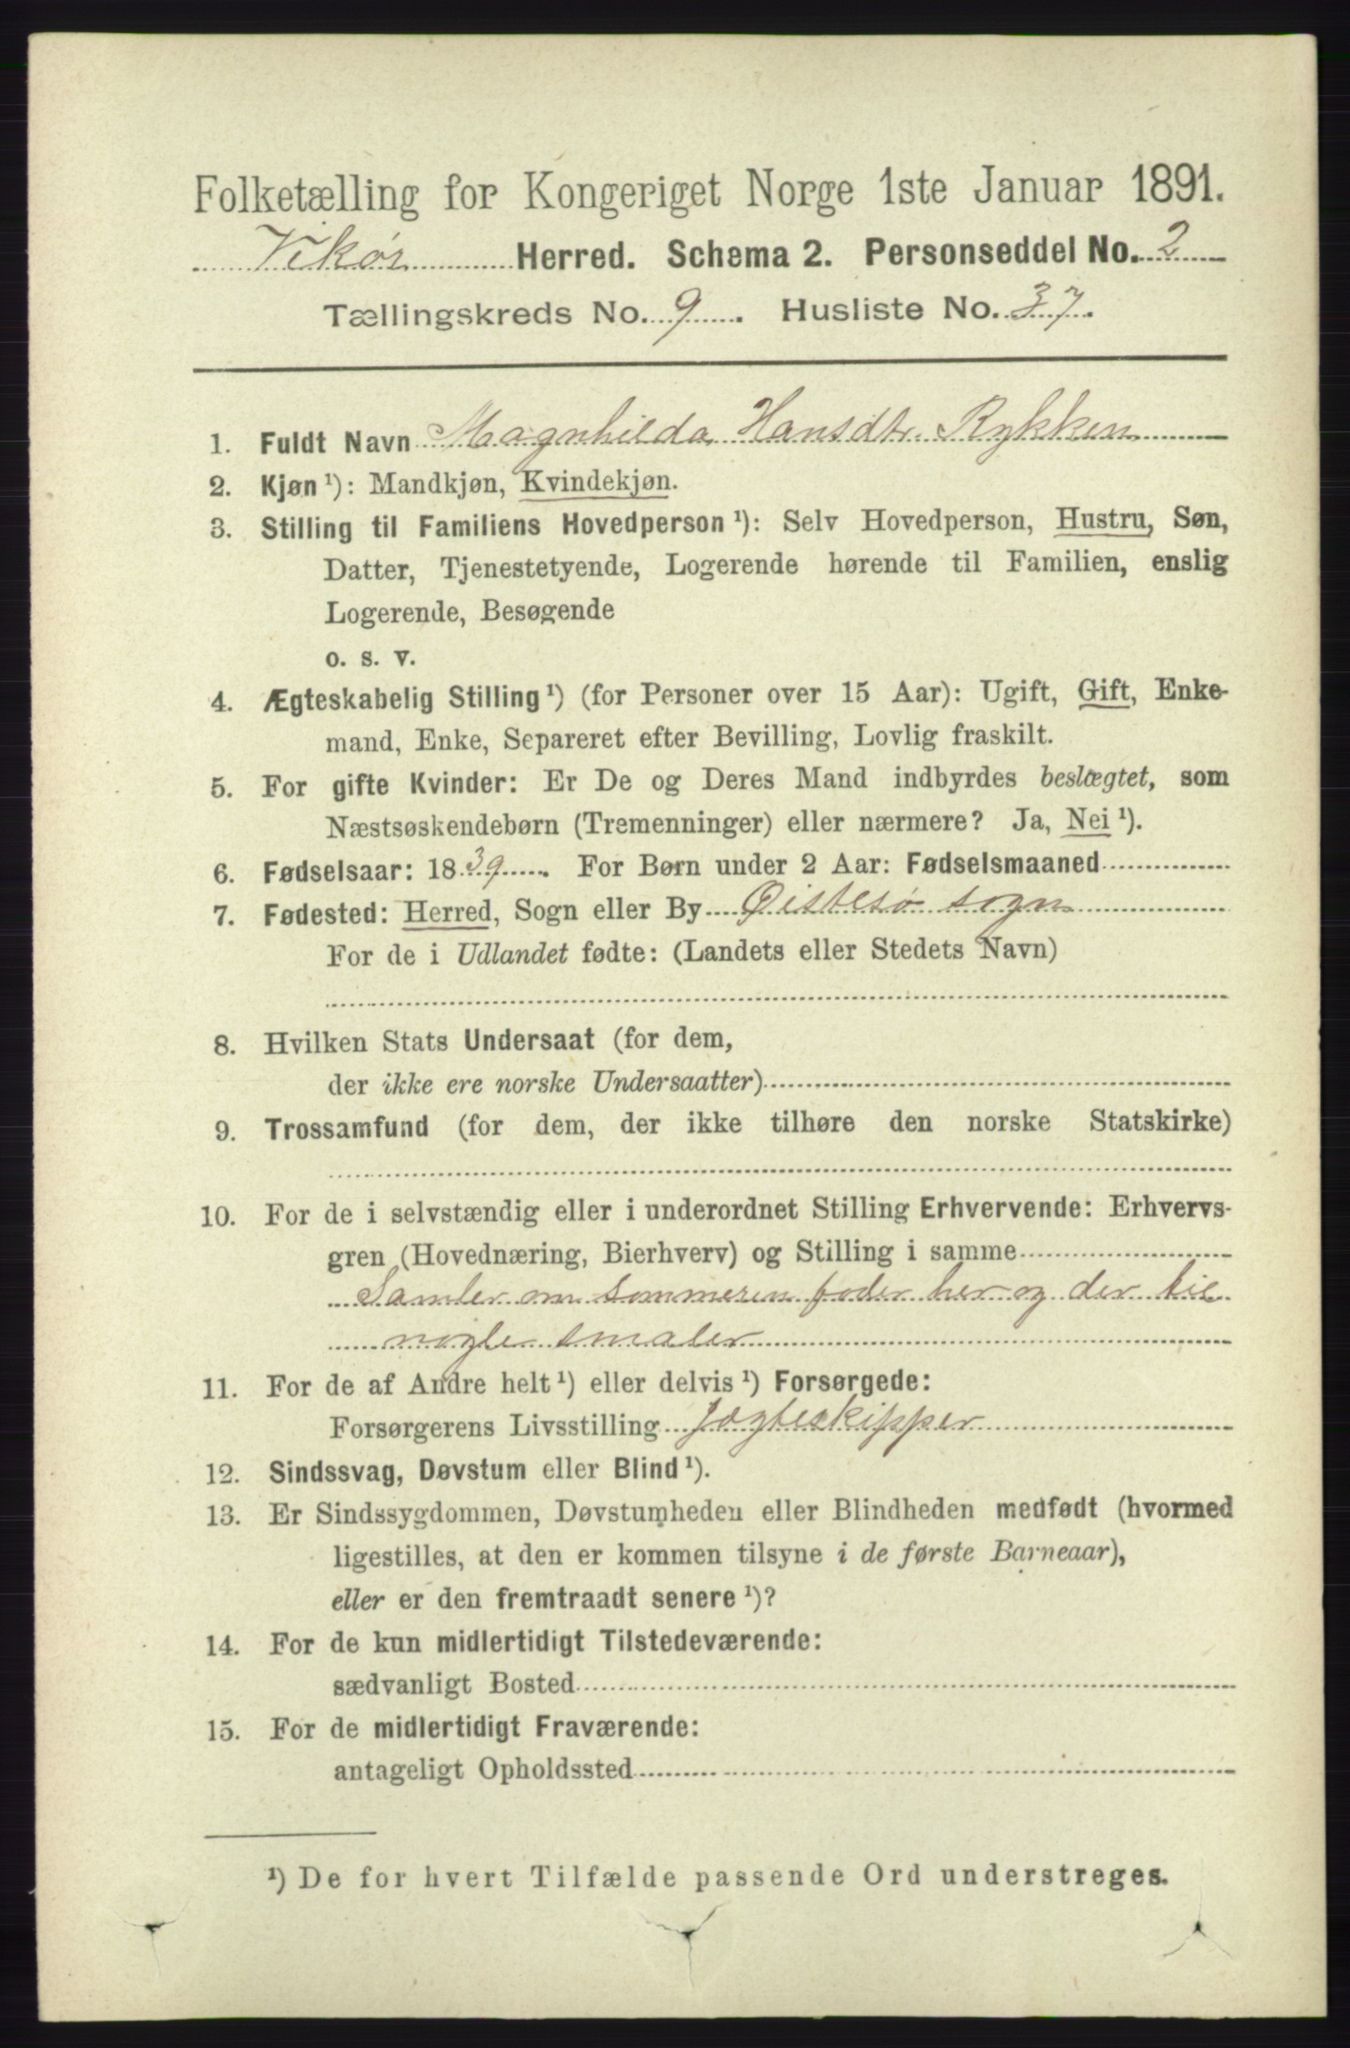 Folketælling for Kongeriget Norge 1ste Januar 1891.
Vikør Herred. Schema 2. Personseddel No. 2
Tællingskreds No. 9. Husliste No. 37.
1. Fuldt Navn Magnhilda Hansdtr. Rykken
2. Kjøn ¹): Mandkjøn, Kvindekjøn.
3. Stilling til Familiens Hovedperson ¹): Selv Hovedperson, Hustru, Søn,
Datter, Tjenestetyende, Logerende hørende til Familien, enslig
Logerende, Besøgende
o. s. v.
4. Ægteskabelig Stilling ¹) (for Personer over 15 Aar): Ugift, Gift, Enke-
mand, Enke, Separeret efter Bevilling, Lovlig fraskilt.
5. For gifte Kvinder: Er De og Deres Mand indbyrdes beslægtet, som
Næstsøskendebørn (Tremenninger) eller nærmere? Ja, Nei ¹).
6. Fødselsaar: 1839. For Børn under 2 Aar: Fødselsmaaned
7. Fødested: Herred, Sogn eller By Østesø sogn
For de i Udlandet fødte: (Landets eller Stedets Navn)
8. Hvilken Stats Undersaat (for dem,
der ikke ere norske Undersaatter)
9. Trossamfund (for dem, der ikke tilhøre den norske Statskirke)
10. For de i selvstændig eller i underordnet Stilling Erhvervende: Erhvervs-
gren (Hovednæring, Bierhverv) og Stilling i samme
Samler om sommeren foder her og der til
nogle smaler
11. For de af Andre helt ¹) eller delvis ¹) Forsørgede:
Forsørgerens Livsstilling Jægteskipper
12. Sindssvag, Døvstum eller Blind ¹).
13. Er Sindssygdommen, Døvstumheden eller Blindheden medfødt (hvormed
ligestilles, at den er kommen tilsyne i de første Barneaar),
eller er den fremtraadt senere ¹)?
14. For de kun midlertidigt Tilstedeværende:
sædvanligt Bosted
15. For de midlertidigt Fraværende:
antageligt Opholdssted
¹) De for hvert Tilfælde passende Ord understreges.